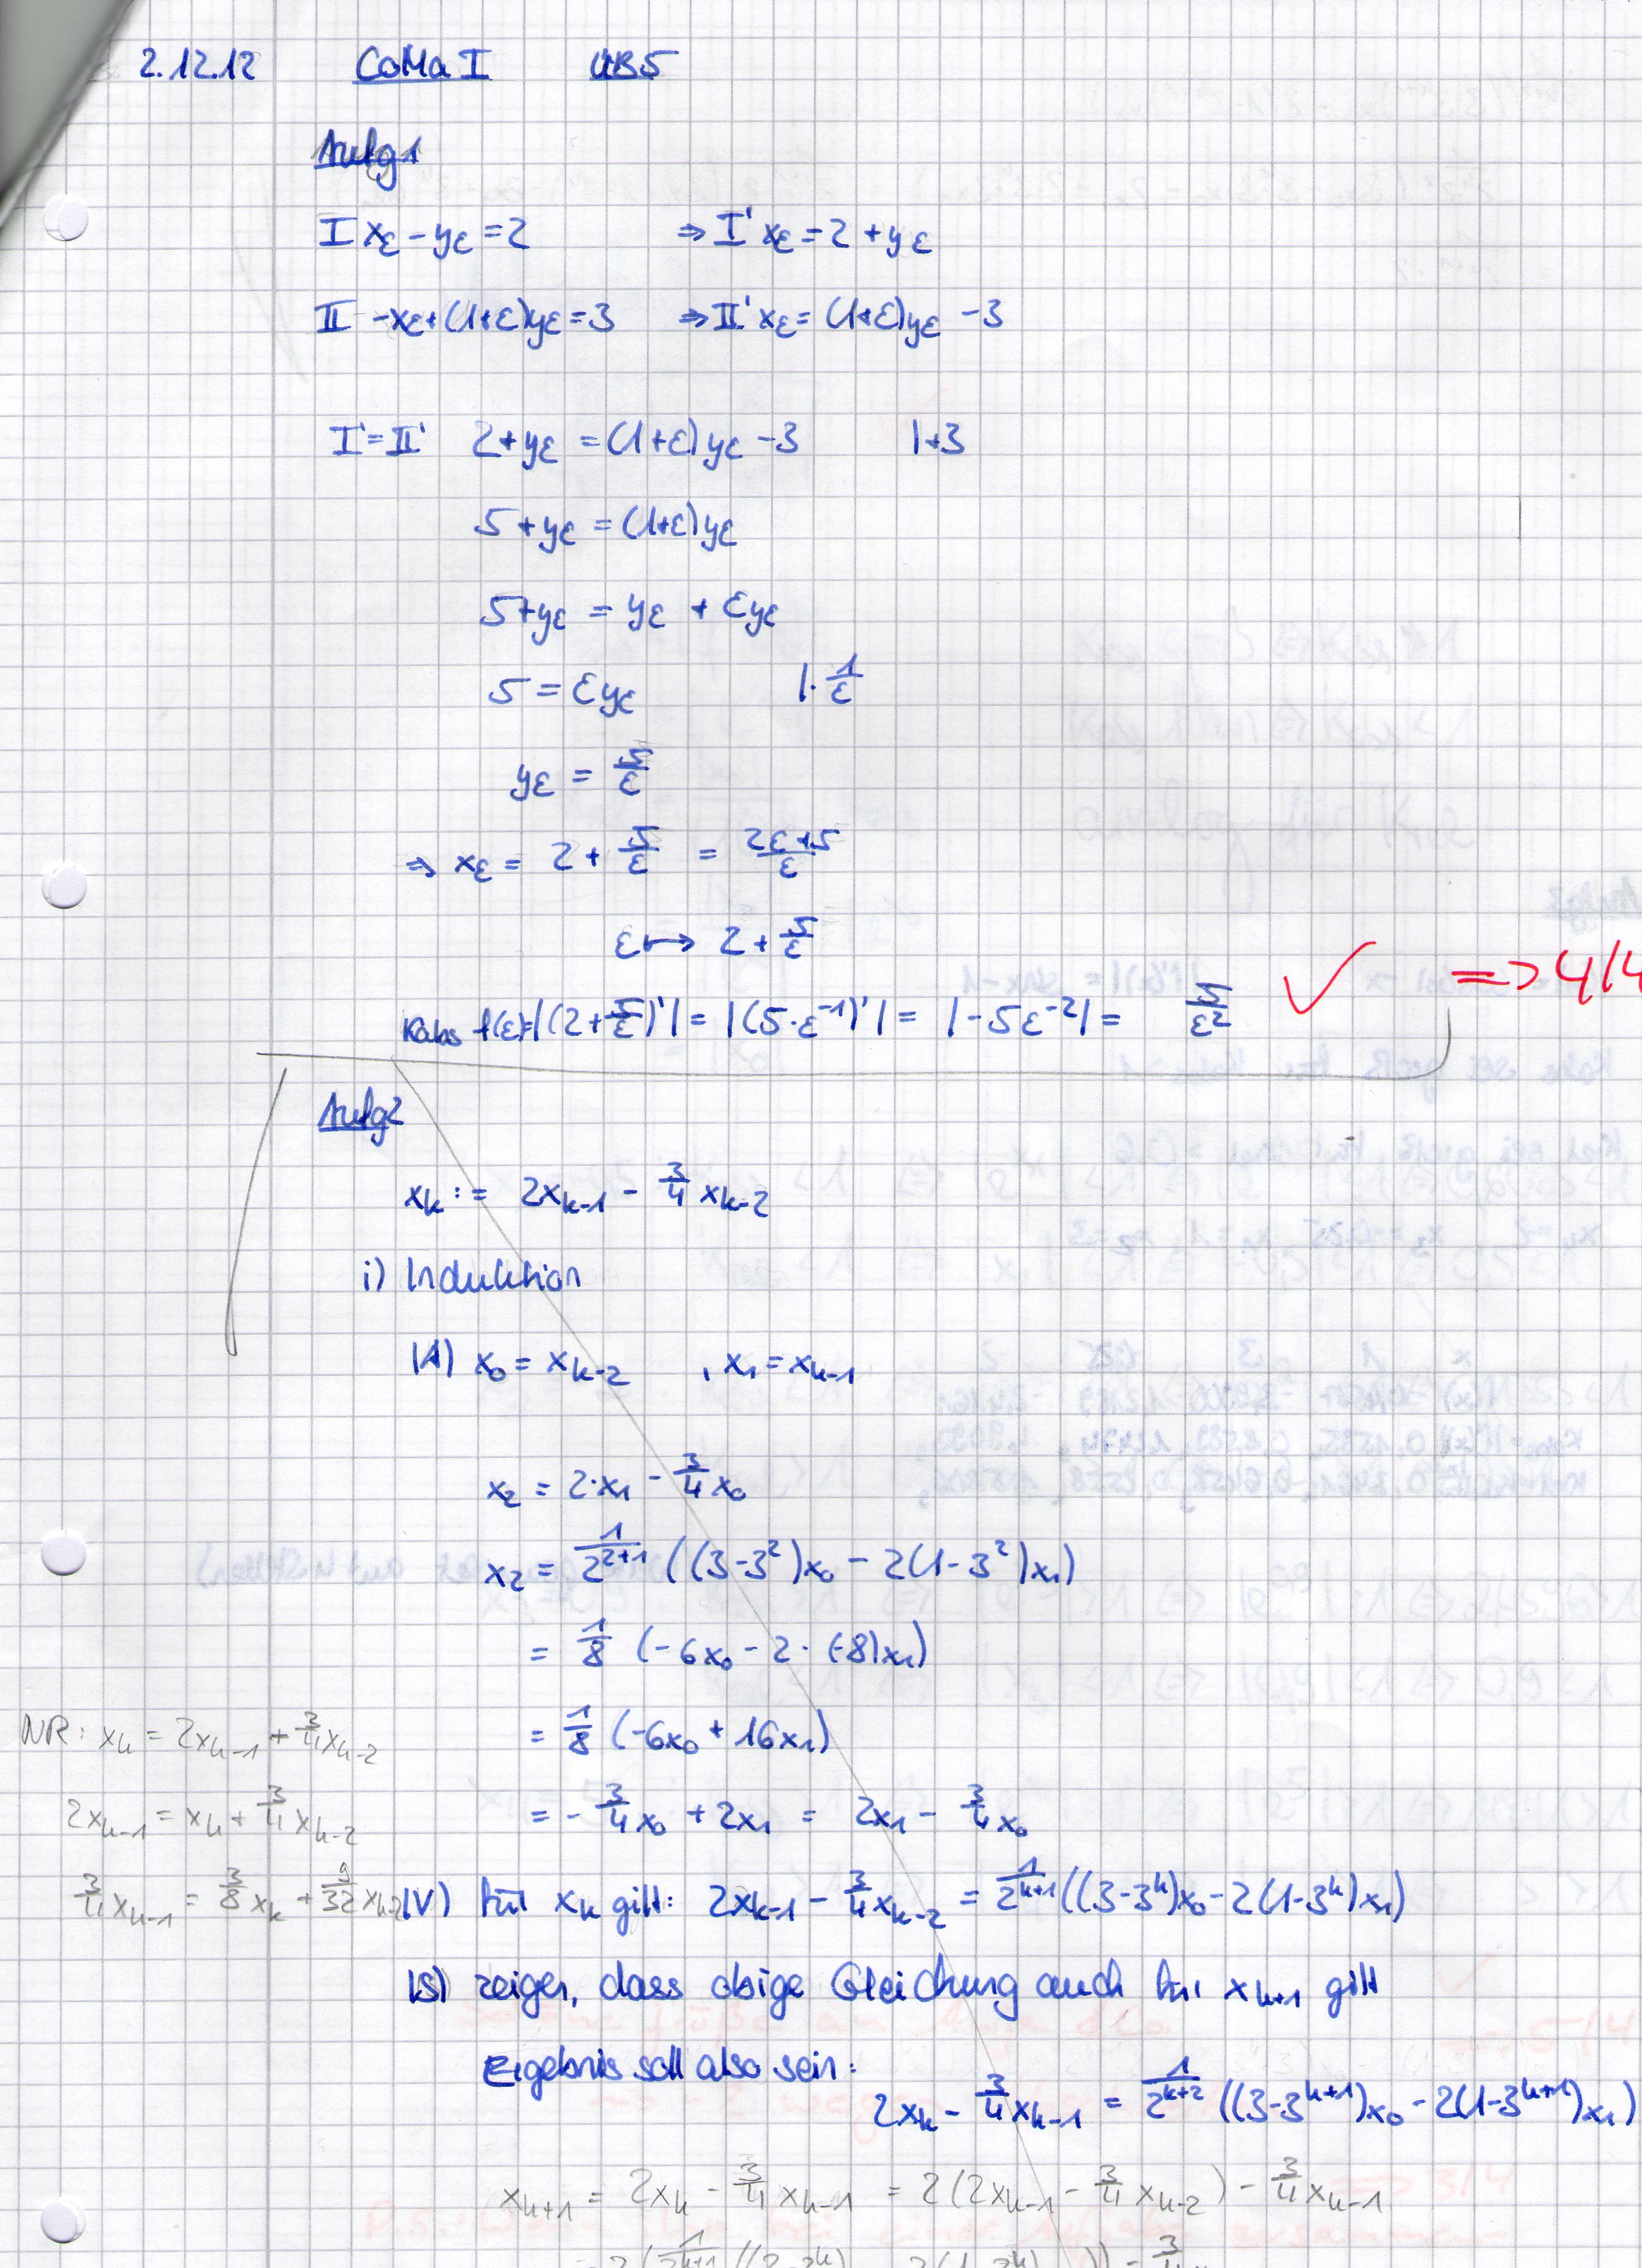 2.12.12 CoMa I ÜB5
Aufg1
I xε - yε = 2 ⇒ I' xε = 2 + yε
II -xε + (1+ε)yε = 3 ⇒ II' xε = (1+ε)yε - 3
I' = II' 2 + yε = (1+ε)yε - 3 |+3
5 + yε = (1+ε)yε
5 + yε = yε + εyε
5 = εyε |· 1/ε
yε = 5/ε
⇒ xε = 2 + 5/ε = (2ε+5)/ε
ε ↦ 2 + 5/ε
Kabs f(ε) = |(2 + 5/ε)'| = |(5·ε^-1)'| = |-5ε^-2| = 5/ε² ✓ => 4/4
Aufg2
x_k := 2x_{k-1} - 3/4 x_{k-2}
i) Induktion
(A) x_0 = x_{k-2} , x_1 = x_{k-1}
x_2 = 2·x_1 - 3/4 x_0
x_2 = 1/2^{2+1} ((3-3²)x_0 - 2(1-3²)x_1)
= 1/8 (-6x_0 - 2·(-8)x_1)
= 1/8 (-6x_0 + 16x_1)
NR: x_k = 2x_{k-1} + 3/4 x_{k-2}
= - 3/4 x_0 + 2x_1 = 2x_1 - 3/4 x_0
2x_{k-1} = x_k + 3/4 x_{k-2}
3/4 x_{k-1} = 3/8 x_k + 9/32 x_{k-2}
(V) für x_k gilt: 2x_{k-1} - 3/4 x_{k-2} = 1/2^{k+1} ((3-3^k)x_0 - 2(1-3^k)x_1)
(S) zeigen, dass obige Gleichung auch für x_{k+1} gilt
Ergebnis soll also sein:
2x_k - 3/4 x_{k-1} = 1/2^{k+2} ((3-3^{k+1})x_0 - 2(1-3^{k+1})x_1)
x_{k+1} = 2x_k - 3/4 x_{k-1} = 2(2x_{k-1} - 3/4 x_{k-2}) - 3/4 x_{k-1}